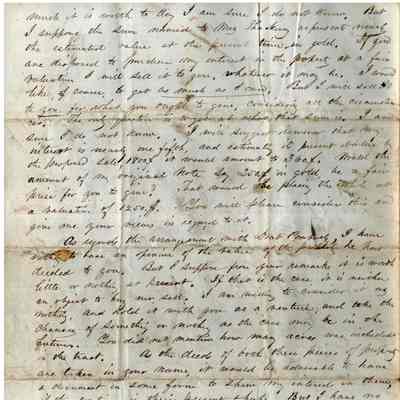 much it is worth to Roy I am sure I do not know. But
I suppose the sum named to Mrs represent nearly
the estimated value at the present time, in gold. If you
are disposed to purchase my interest in the property at a fair
valuation I will sell it to you, whatever it may be. I would
like of course, to get as much as I can. But I will sell it
to you for what you ought to give, considering all the circumstan-
ces. The only question is as to what that sum is. I am
sure I do not know. I will suggest however that my
interest is nearly one fifth, and estimating it present value by
the proposed sale it would amount to Would the
amount of my original Note Say in gold, be a fair
price for you to give? That would be placing the whole at
a valuation of 1250 You will please consider this and
give me your views in regard to it.
As regards the arrangement with I have
to have an of the the he has
deeded to you. But I suppose from your remarks it is worth
little or nothing at present. If that is the case it is neither
an object to buy nor sell. I am willing to consider it as
nothing, and hold it with you as a venture, and take the
chances of something or much, as the case may be in the
future. You did not mention how many acres was included
in the tract. As the deeds of both these pieces of property
are taken in your name, it would be advisable to have
a document in some form to show my interest in them,
in their present shape. But I have no